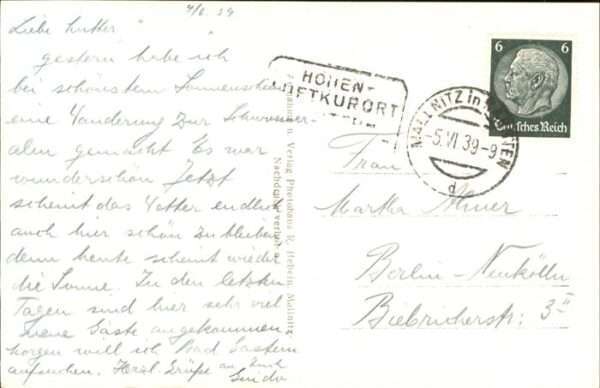 4/6. 39
Liebe Mutter
gestern habe ich
bei schönstem Sonnenschein
eine Wanderung zur Schwusner
alm gemacht Es war
wunderschön Jetzt
scheint das Wetter endlich
auch hier schön zu bleiben
denn heute scheint wieder
die Sonne. In den letzten
Tagen sind hier sehr viel
neue Gäste angekommen
morgen will ich Bad Gastein
aufsuchen. Herzl. Grüße an Euch
Guido
HÖHEN-
LUFTKURORT
MALLNITZ in
-5.VI 39-9
d
6 6
Deutsches Reich
Verlag Photohaus
Mallnitz
Frau
Martha
Berlin-Neukölln
Biebricherstr: 3 II